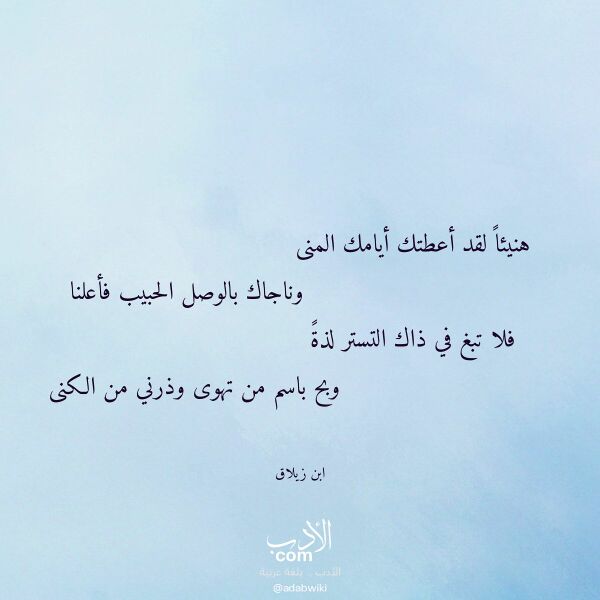 هنيئاً لقد أعطتك أيامك المنى
وناجاك بالوصل الحبيب فأعلنا
فلا تبغ في ذاك التستر لذةً
وبح باسم من تهوى وذرني من الكنى
ابن زيلاق
الأدب
com
الأدب .. بلغة عربية
@adabwiki